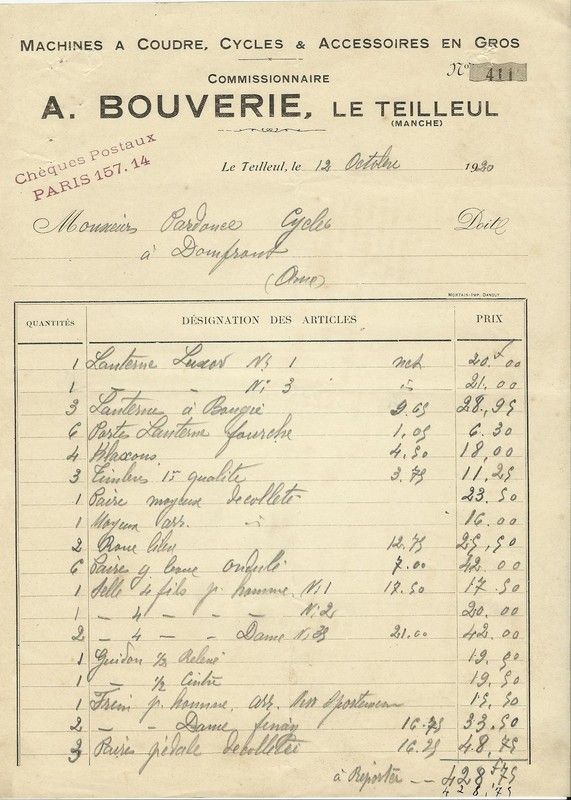 MACHINES A COUDRE, CYCLES & ACCESSOIRES EN GROS
COMMISSIONNAIRE
Nº 411
A. BOUVERIE, LE TEILLEUL
(MANCHE)
Chèques Postaux
PARIS 157.14
Le Teilleul, le 12 Octobre 1920
Cycles Doit
à Domfront
(Orne)
MORTAIN-IMP. DANGUY
QUANTITÉS DÉSIGNATION DES ARTICLES PRIX
1 Lanterne Luxor Nº 1 net 20.00
1 — — Nº 3 21.00
3 Lanterne à Bougie 9.65 28,95
6 Portes Lanterne fourche 1,05 6.30
4 Klaxons 4,50 18,00
3 Timbres 1re qualité 3.75 11,25
1 Paire moyeux decolleté 23.50
1 Moyeux arr. 16.00
2 Roue libre 12.75 25,50
6 Paires g boue ondulé 7.00 42.00
1 Selle 4 fils p. homme Nº 1 17.50 17.50
1 — 4 — — — Nº 2 20.00
2 — 4 — — Dame Nº 21.00 42.00
1 Guidon 1/2 Relevé 19.00
1 — 1/2 Cintré 19.50
1 Frein p. homme arr. 15,50
2 — — Dame 16.75 33,50
3 Paires pédale decolletée 16.25 48,75
à Reporter — 428,75
428,75